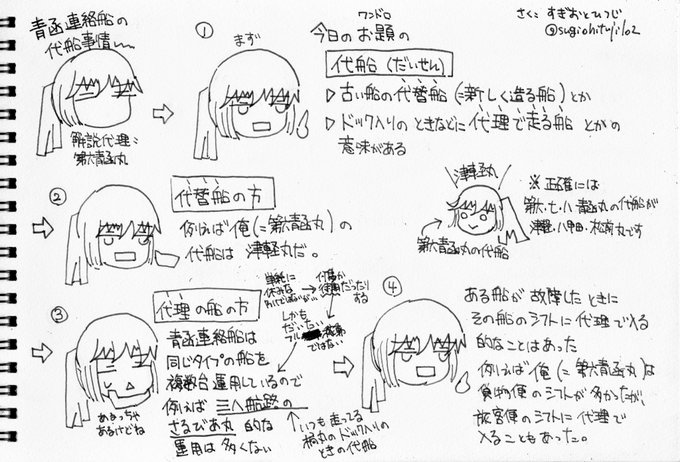 青函連絡船の
代船事情
解説代理:
第六青函丸
さくこ すぎおとひつじ
①
まず
ワンドロ
今日のお題の
代船(だいせん)
▷古い船の代替船(=新しく造る船)とか
▷ドック入りのときなどに代理で走る船とかの
意味がある
②
代替船の方
例えば俺(=第六青函丸)の
代船は津軽丸だ。
津軽丸
第六青函丸の代船
※正確には
第六・七・八青函丸の代船が
津軽・八甲田・松前丸です
③
代理の船の方
青函連絡船は
同じタイプの船を
複数台運用しているので
例えば三八航路の
さるびあ丸的な
運用は多くない
めちゃ
あるけどね
単純に
しかも
だいたい
ではない
いつも走ってる
橘丸のドック入りの
ときの代船
④
ある船が故障したときに
その船のシフトに代理で入る
的なことはあった
例えば俺(=第六青函丸)は
貨物便のシフトが多かったが、
旅客便のシフトに代理で
入ることもあった。